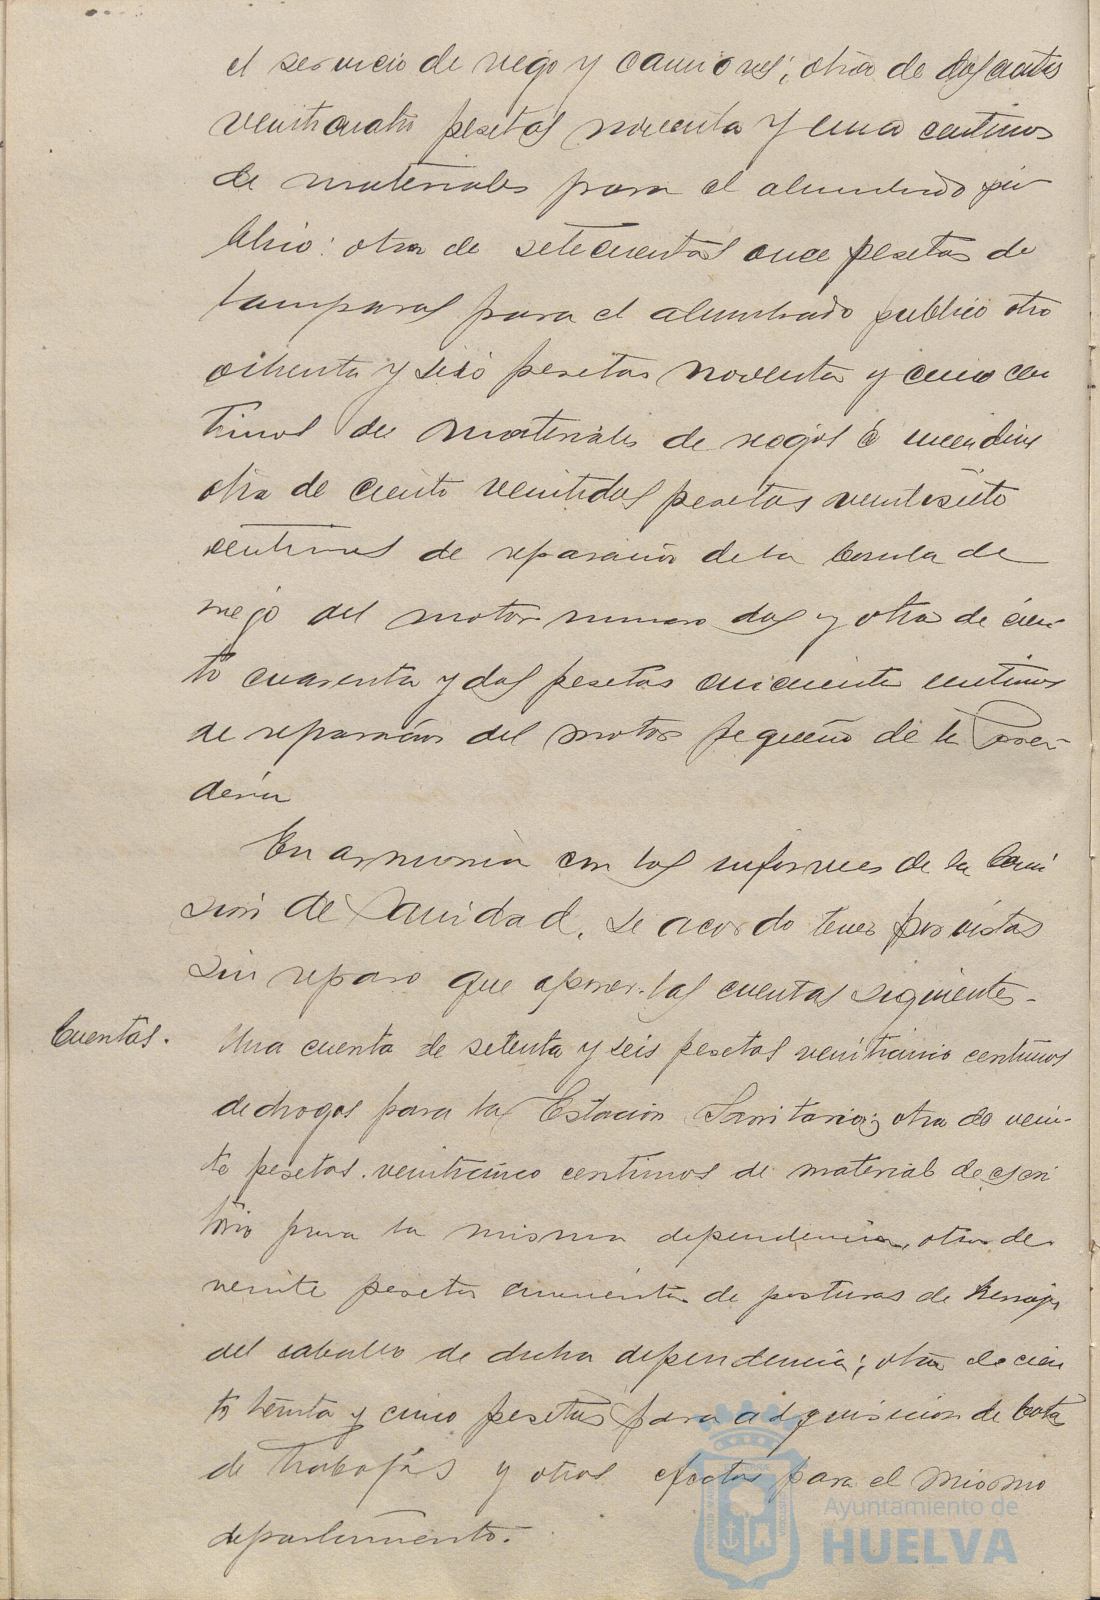 el servicio de riego y camiones; otra de doscientas
veinticuatro pesetas noventa y cinco centimos
de materiales para el alumbrado pú
blico: otra de setecientas once pesetas de
lamparas para el alumbrado publico otra
ochenta y seis pesetas noventa y cinco cen
timos de materiales de riegos é incendios
otra de ciento veintidos pesetas veintisiete
centimos de reparacion de la bomba de
riego del motor numero dos y otra de cien-
to cuarenta y dos pesetas cincuenta centimos
de reparacion del motor pequeño de la
deria
En armonia con los informes de la Comi
sion de Sanidad. Se acordo tener por vistas
sin reparo que oponer las cuentas siguientes-
Cuentas.
Una cuenta de setenta y seis pesetas veinticinco centimos
de drogas para la Estacion Sanitaria; otra de vein-
te pesetas veinticinco centimos de material de escri
torio para la misma dependencia, otra de
veinte pesetas cincuenta de posturas de herrajes
del caballo de dicha dependencia; otra de cien
to treinta y cinco pesetas para adquisicion de bata
de trabajos y otros efectos para el mismo
departamento.
Ayuntamiento de
HUELVA